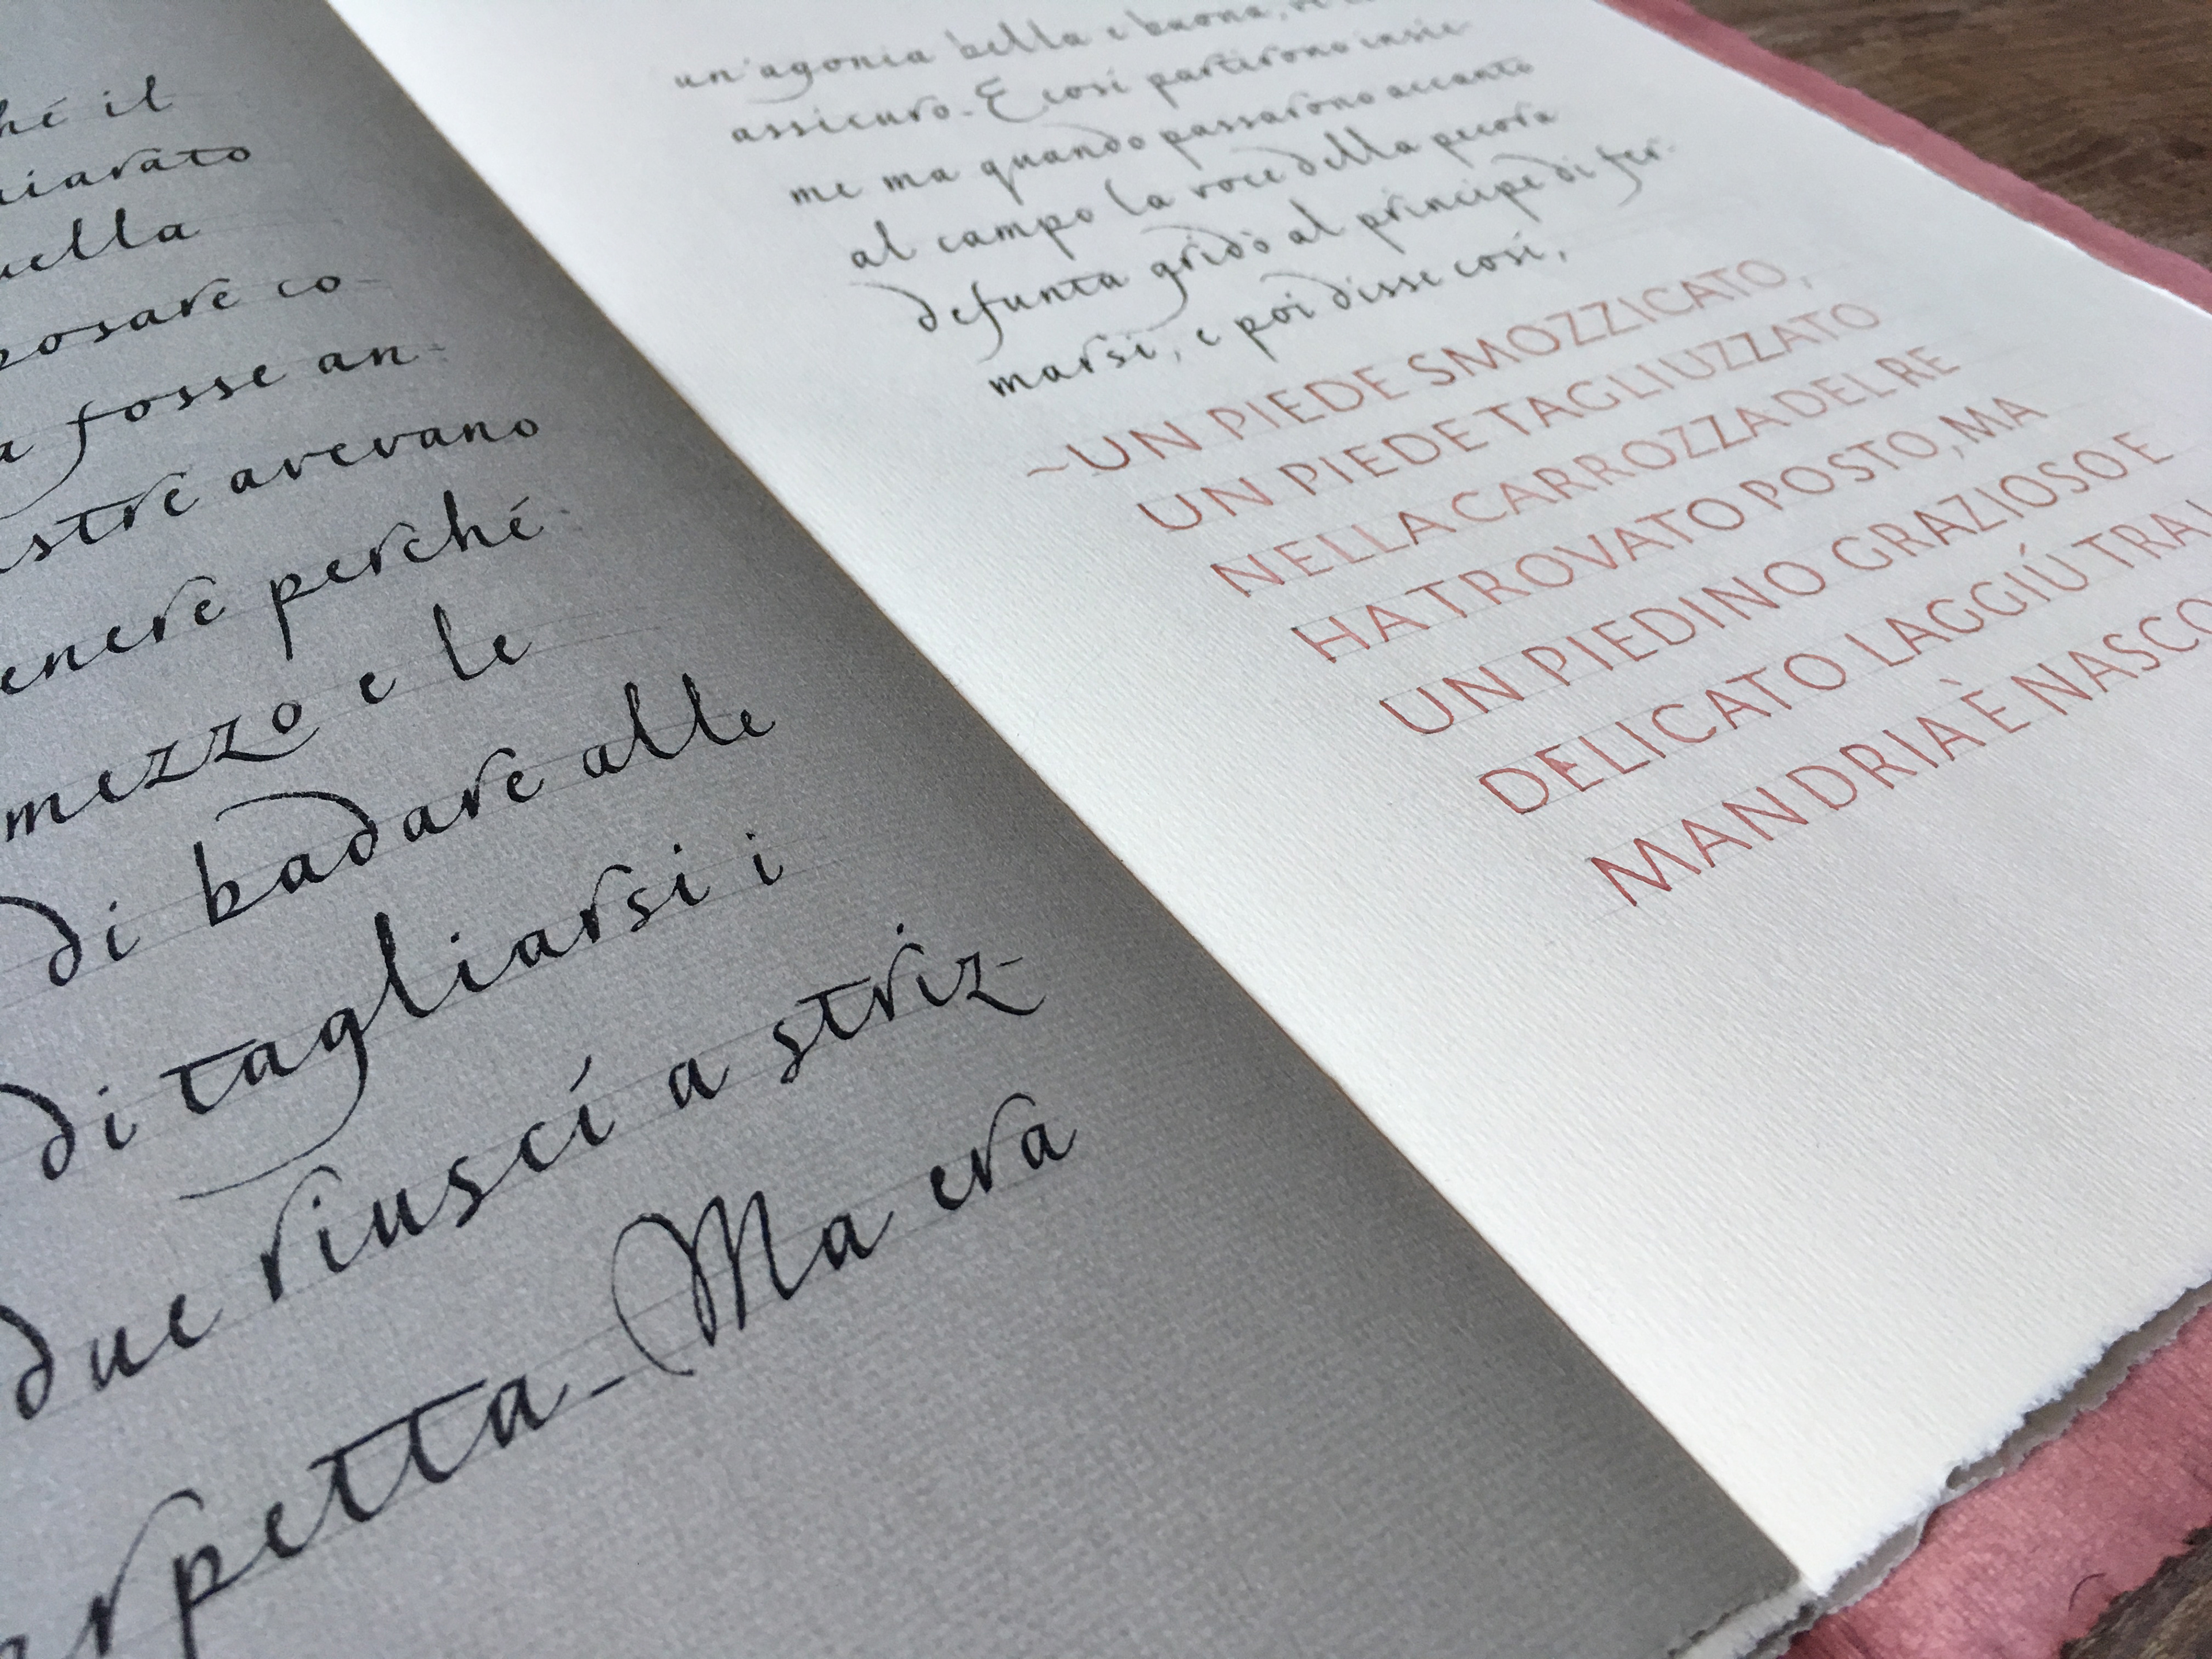 il
fosse an-
avevano
perché
mezzo e le
di badare alle
di tagliarsi i
due riuscí a striz-
Ma era
un'agonia bella e buona,
assicuro. E cosí partirono insie-
me ma quando passarono accanto
al campo la voce della pecora
defunta gridò al principe di fer-
marsi, e poi disse cosí,
~UN PIEDE SMOZZICATO,
UN PIEDE TAGLIUZZATO
NELLA CARROZZA DEL RE
HA TROVATO POSTO, MA
UN PIEDINO GRAZIOSO E
DELICATO LAGGIÚ TRA
MANDRIA È